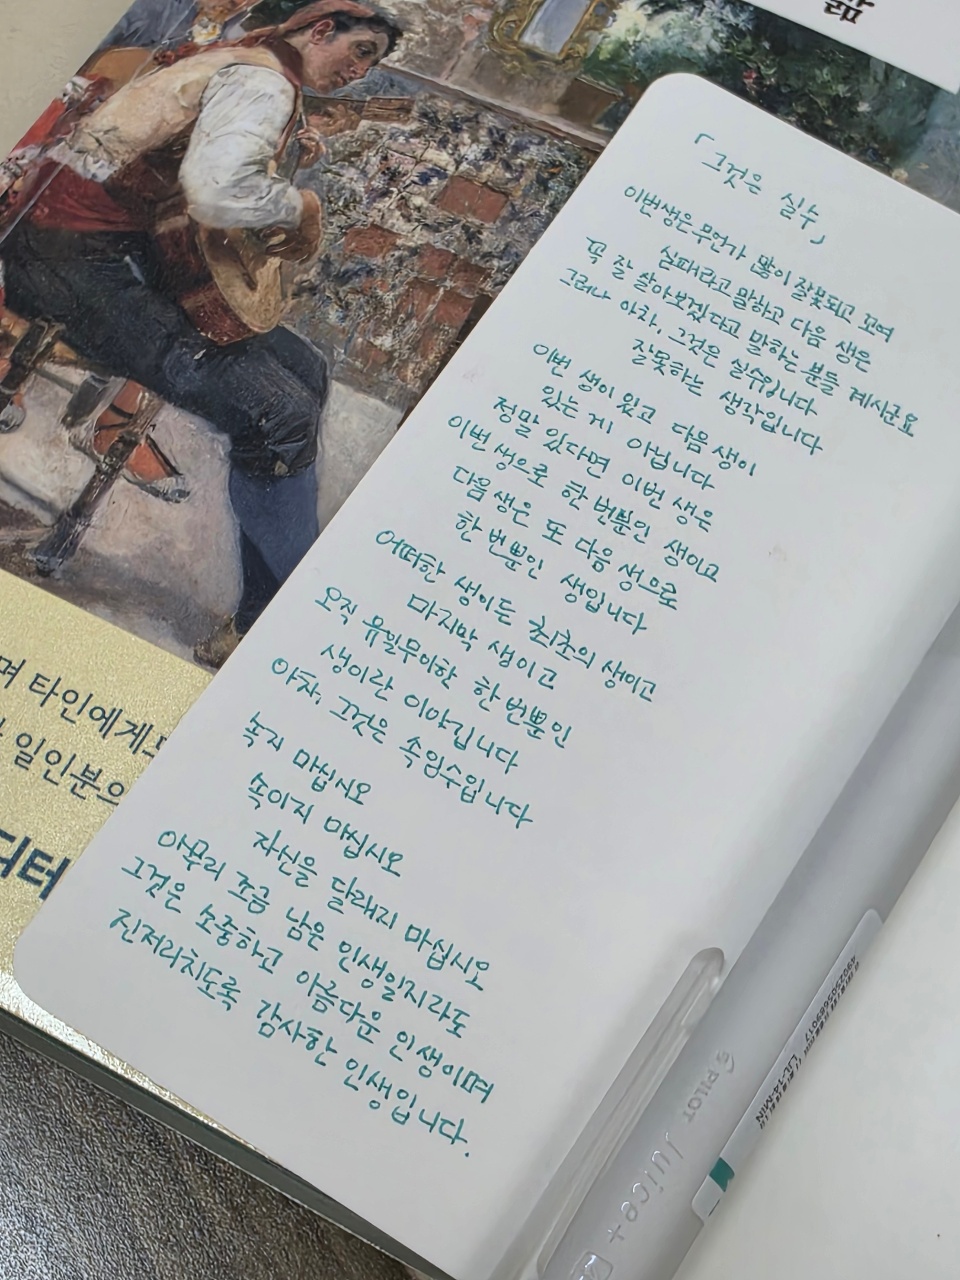 삶
「그것은 실수」
이번생은 무언가 많이 잘못되고 꼬여
실패라고 말하고 다음 생은
꼭 잘 살아보겠다고 말하는 분들 계시군요
그러나 아차, 그것은 실수입니다
잘못하는 생각입니다
이번 생이 있고 다음 생이
있는 게 아닙니다
정말 있다면 이번 생은
이번 생으로 한 번뿐인 생이고
다음 생은 또 다음 생으로
한 번뿐인 생입니다
어떠한 생이든 최초의 생이고
마지막 생이고
오직 유일무이한 한 번뿐인
생이란 이야깁니다
아차, 그것은 속임수입니다
속지 마십시오
속이지 마십시오
자신을 달래지 마십시오
아무리 조금 남은 인생일지라도
그것은 소중하고 아름다운 인생이며
진저리치도록 감사한 인생입니다.
며 타인에게
일인분으
디터
PILOT
Juice+
4902505689017